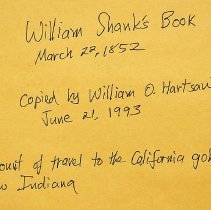 William Shank's Book
March 22, 1852
Copied by William O. Hartsaw
June 21, 1993
ount of travel to the California gol
w Indiana